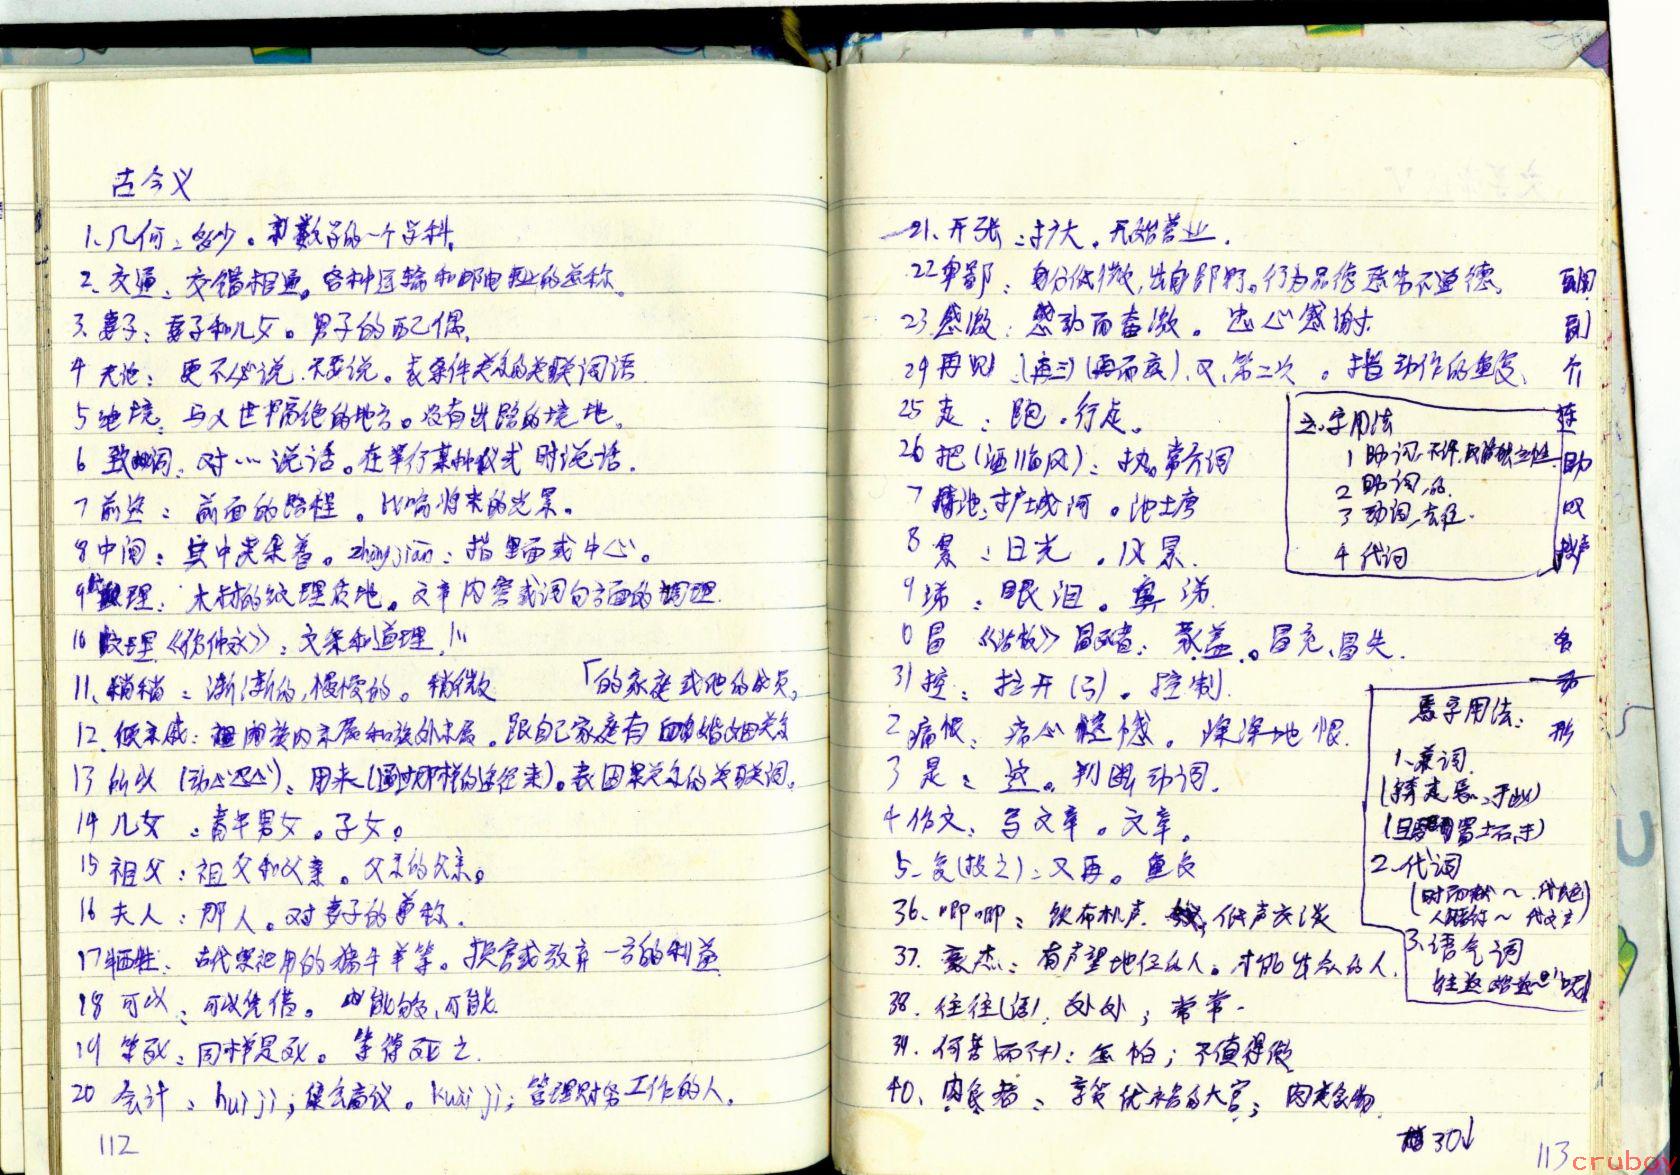 古今义
1、几何：多少。数学的一个学科。
2、交通：交错相通。各种运输和邮电事业的总称。
3、妻子：妻子和儿女。男子的配偶。
4 无论：更不必说、不要说。表条件关系的关联词语
5 绝境：与人世隔绝的地方。没有出路的境地。
6 致词：对…说话。在举行某种仪式时说话.
7 前途：前面的路程。比喻将来的光景。
8 中间：其中夹杂着。zhōngjiān：指里面或中心。
9 理：木材的纹理质地。文章内容或词句方面的条理.
10 文理《伤仲永》：文采和道理.
11、稍稍：渐渐的,慢慢的。稍微
「的家庭或他的成员。
12、亲戚：族内亲属和族外亲属。跟自己家庭有婚姻关系
13 所以（动心忍心）、用来(通过那样的途径来)。表因果关系的关联词。
14 儿女：青年男女。子女。
15 祖父：祖父和父亲。父亲的父亲。
16 夫人：那人。对妻子的尊称.
17 牺牲：古代祭祀用的猪牛羊等。损害或放弃一方的利益
18 可以：可以凭借。能够,可能
19 等死：同样是死。等待死之.
20 会计：huì jì；集会商议。kuài jì；管理财务工作的人.
112
21、开张：扩大。开始营业.
22 卑鄙：身份低微,出自鄙野。行为品德恶劣不道德。
23 感激：感动而奋激。忠心感谢
24 再见(再三)(再而衰)、又、第二次。指动作的重复、
25 走：跑。行走。
26 把(酒临风)：执。常介词
7 池：护城河。池塘
8 景：日光。风景.
9 涕：眼泪。鼻涕.
0 冒《活板》冒：蒙,盖。冒充,冒失.
31 控：拉开(弓)。控制.
2 痛恨：痛心遗憾。深深地恨.
3 是：这。判断动词.
4 作文：写文章。文章。
5 复(投之)：又再。重复
36、唧唧：织布机声.低声交谈
37、豪杰：有声望地位的人。才能出众的人.
38、往往(语)、处处；常常.
39、何苦(而不平)：怎怕；不值得做
40、肉食者：享受优禄的大官；肉类食物
30↓
113
之字用法
1 助词、不译,取消独立性
2 助词,的
3 动词,去往.
4 代词
助
叹
拟声
焉字用法：
1、兼词
2 代词
3、语气词
crubov